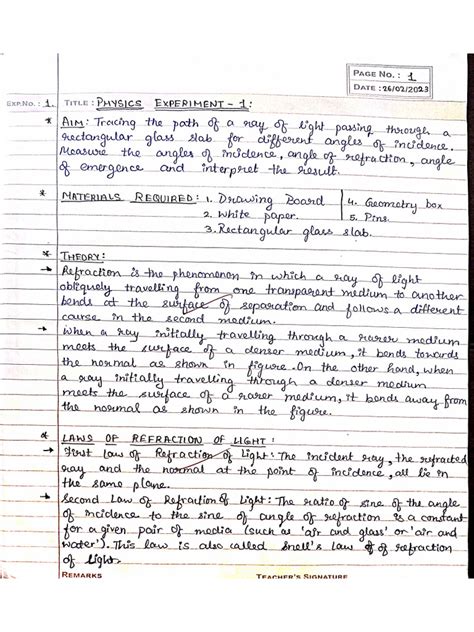 PAGE No. : 1
DATE : 26/02/2023
EXP.No. : 1. TITLE : PHYSICS EXPERIMENT - 1 :
* AIM : Tracing the path of a ray of light passing through a
rectangular glass slab for different angles of incidence.
Measure the angles of incidence, angle of refraction, angle
of emergence and interpret the result.
* MATERIALS REQUIRED : 1. Drawing Board 4. Geometry box
2. White paper. 5. Pins.
3. Rectangular glass slab.
* THEORY :
→ Refraction is the phenomenon in which a ray of light
obliquely travelling from one transparent medium to another
bends at the surface of separation and follows a different
course in the second medium.
→ When a ray initially travelling through a rarer medium
meets the surface of a denser medium, it bends towards
the normal as shown in figure. On the other hand, when
a ray initially travelling through a denser medium
meets the surface of a rarer medium, it bends away from
the normal as shown in the figure.
* LAWS OF REFRACTION OF LIGHT :
→ First law of Refraction of Light : The incident ray, the refracted
ray and the normal at the point of incidence, all lie in
the same plane.
→ Second Law of Refraction of Light : The ratio of sine of the angle
of incidence to the sine of angle of refraction is a constant
for a given pair of media (such as 'air and glass' or 'air and
water'). This law is also called Snell's law of refraction
of light.
REMARKS TEACHER'S SIGNATURE